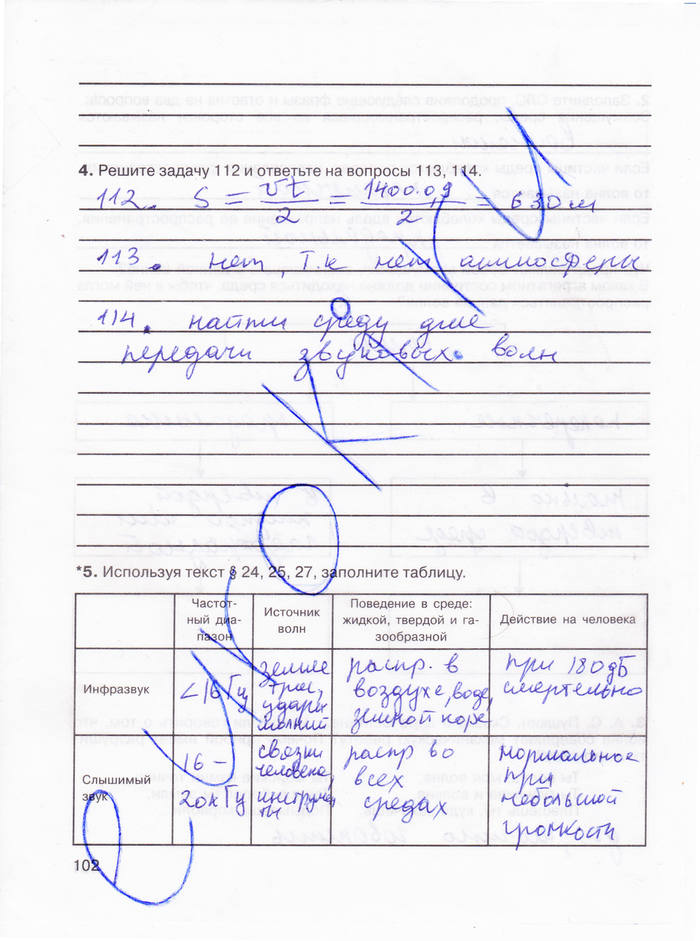 4. Решите задачу 112 и ответьте на вопросы 113, 114.
112. S = vt/2 = 1400·0,9/2 = 630 м
113. нет, т.к нет атмосферы
114. найти среду для
передачи звуковых волн
*5. Используя текст § 24, 25, 27, заполните таблицу.
Частот-
ный диа-
пазон
Источник
волн
Поведение в среде:
жидкой, твердой и га-
зообразной
Действие на человека
Инфразвук
<16 Гц
землетря,
удары
молний
распр. в
воздухе, воде,
земной коре
при 180 дБ
смертельно
Слышимый
звук
16 –
20кГц
связки
человека,
инструмен
ты
распр во
всех
средах
нормальное
при
небольшой
громкости
102